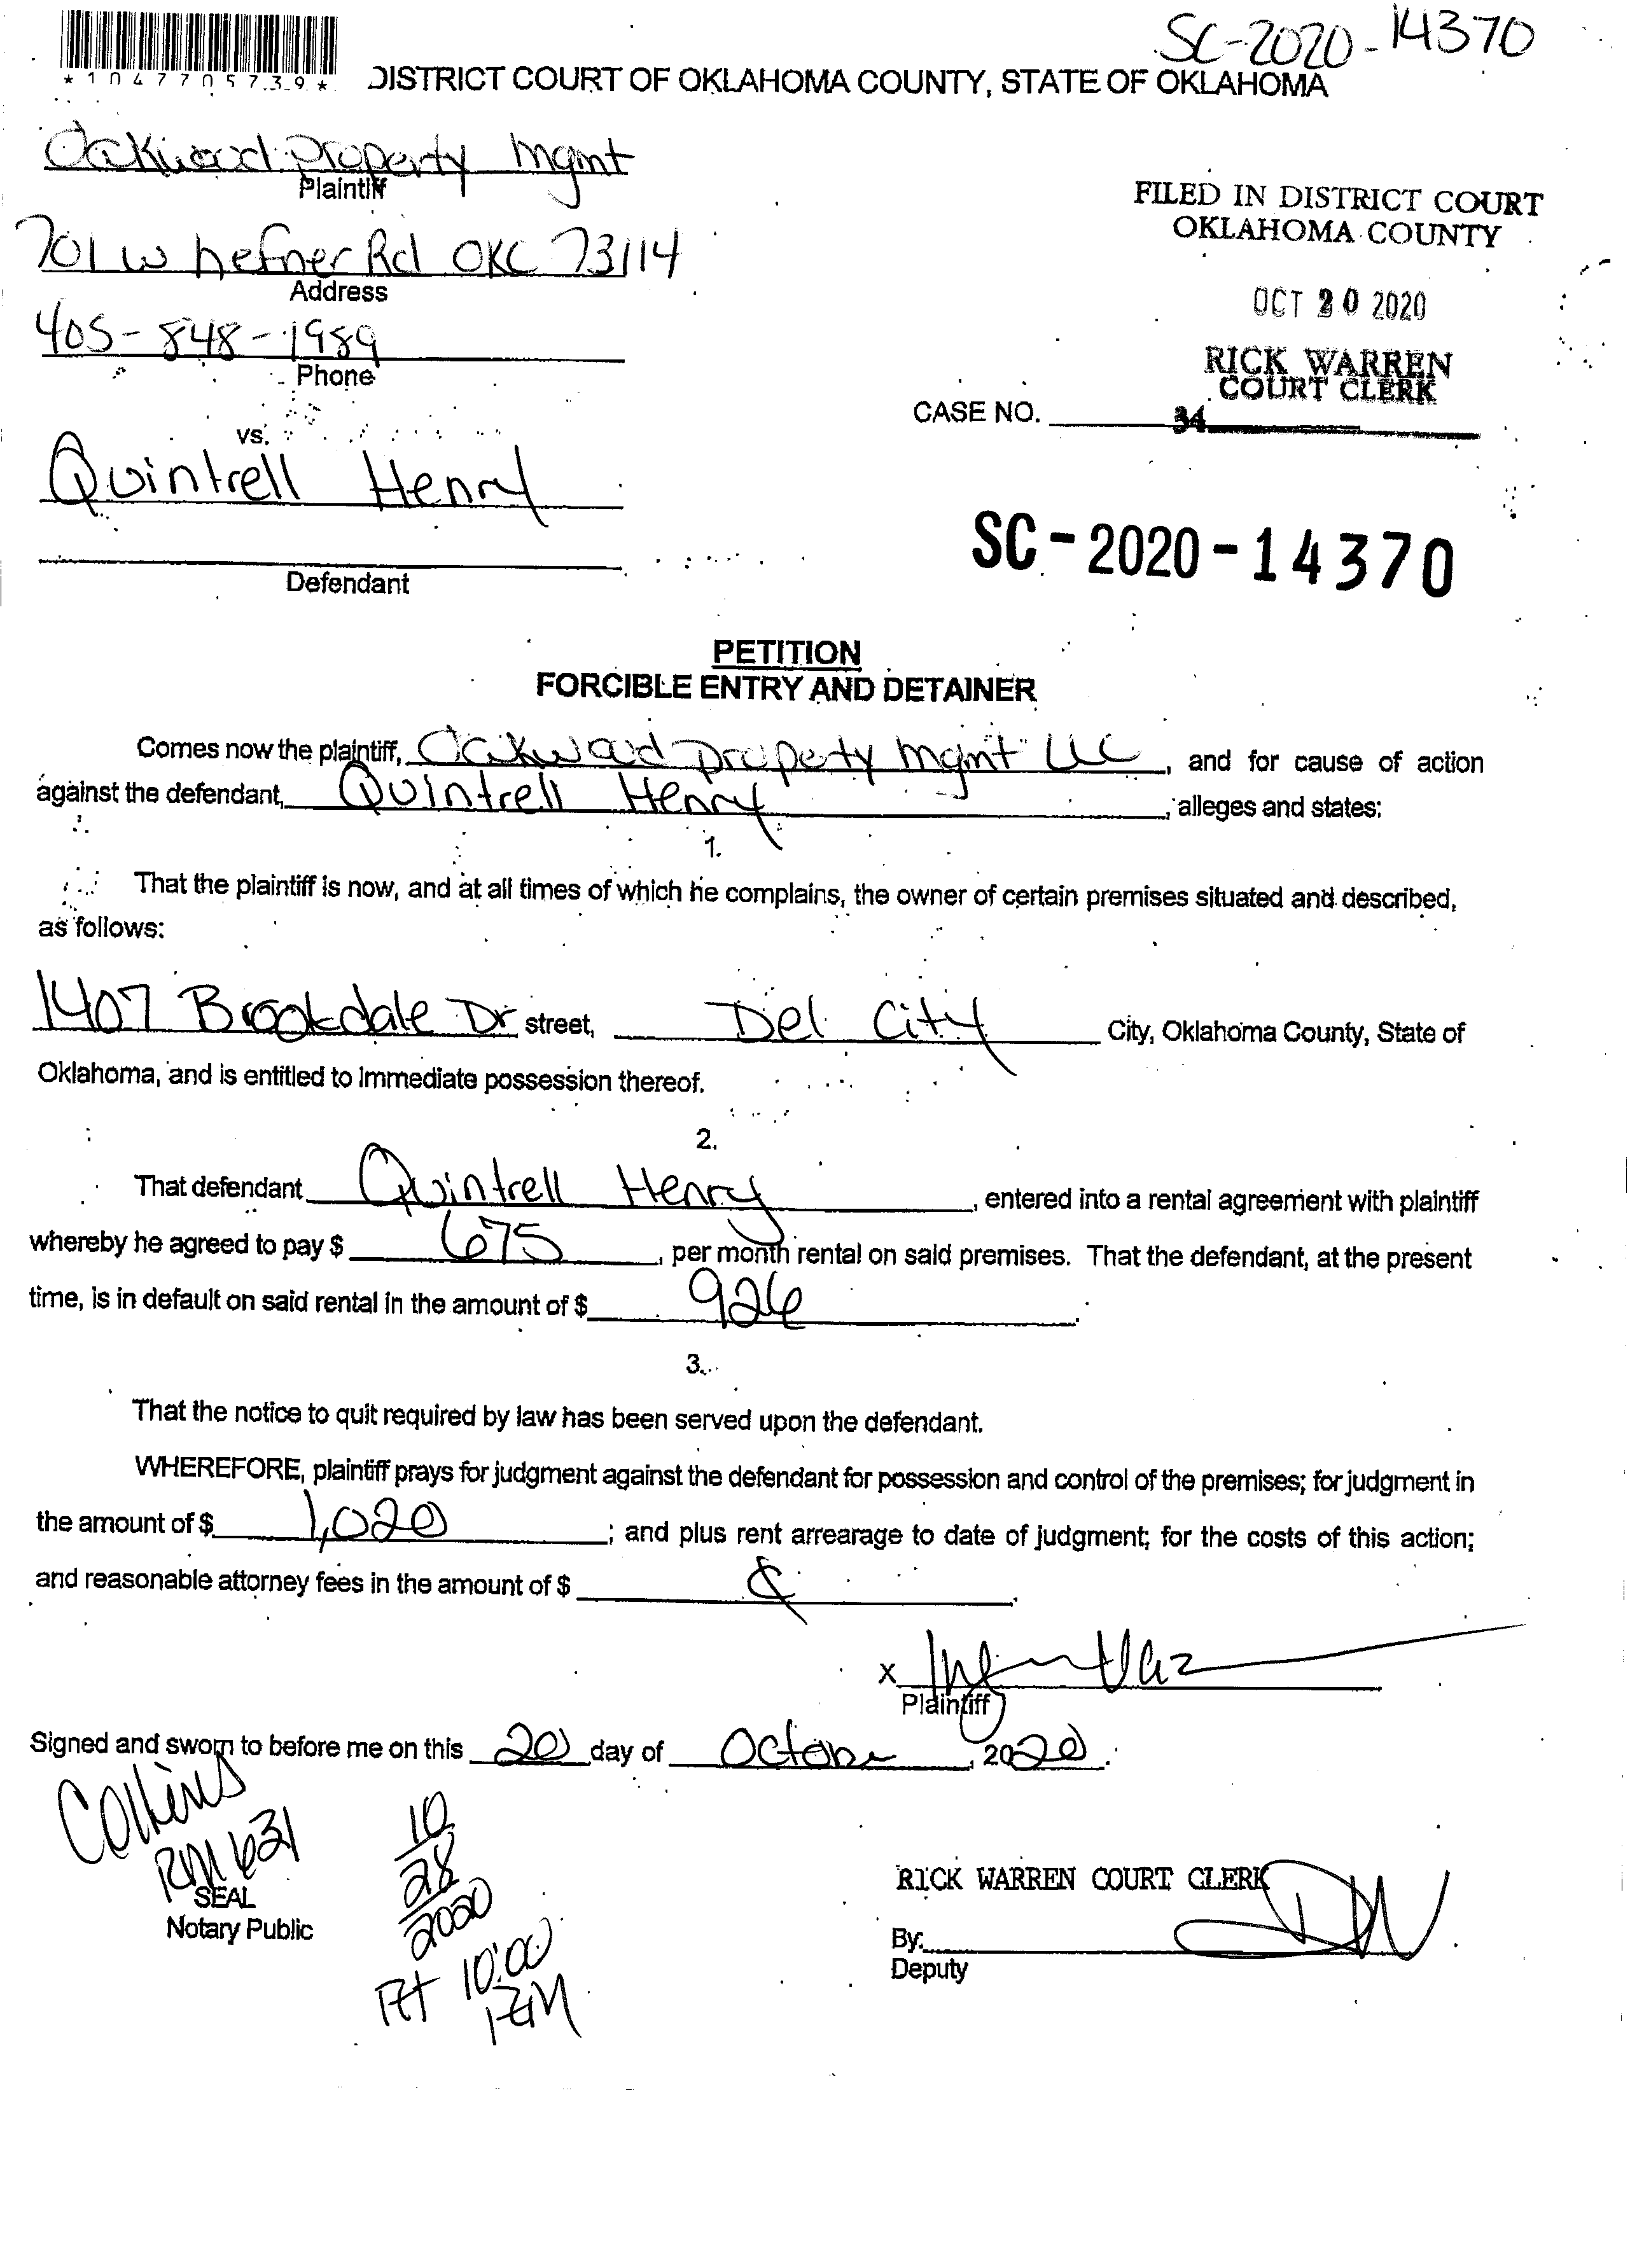 SC-2020-14370
*1047705739*
DISTRICT COURT OF OKLAHOMA COUNTY, STATE OF OKLAHOMA
Oakwood Property Mgmt
Plaintiff
FILED IN DISTRICT COURT
OKLAHOMA COUNTY
701 W hefner Rd OKC 73114
Address
OCT 20 2020
405-848-1989
Phone
RICK WARREN
COURT CLERK
CASE NO.
34
vs.
Quintrell Henry
SC-2020-14370
Defendant
PETITION
FORCIBLE ENTRY AND DETAINER
Comes now the plaintiff, Oakwood Property Mgmt LLC, and for cause of action
against the defendant, Quintrell Henry, alleges and states:
1.
That the plaintiff is now, and at all times of which he complains, the owner of certain premises situated and described,
as follows:
1407 Brookdale Dr street, Del City City, Oklahoma County, State of
Oklahoma, and is entitled to immediate possession thereof.
2.
That defendant Quintrell Henry, entered into a rental agreement with plaintiff
whereby he agreed to pay $ 675, per month rental on said premises. That the defendant, at the present
time, is in default on said rental in the amount of $ 926.
3.
That the notice to quit required by law has been served upon the defendant.
WHEREFORE, plaintiff prays for judgment against the defendant for possession and control of the premises; for judgment in
the amount of $ 1,020; and plus rent arrearage to date of judgment; for the costs of this action;
and reasonable attorney fees in the amount of $
X
Plaintiff
Signed and sworn to before me on this 20 day of October, 2020.
Collins
RM 631
SEAL
Notary Public
10
28
2020
At 10:00
AM
RICK WARREN COURT CLERK
By:
Deputy